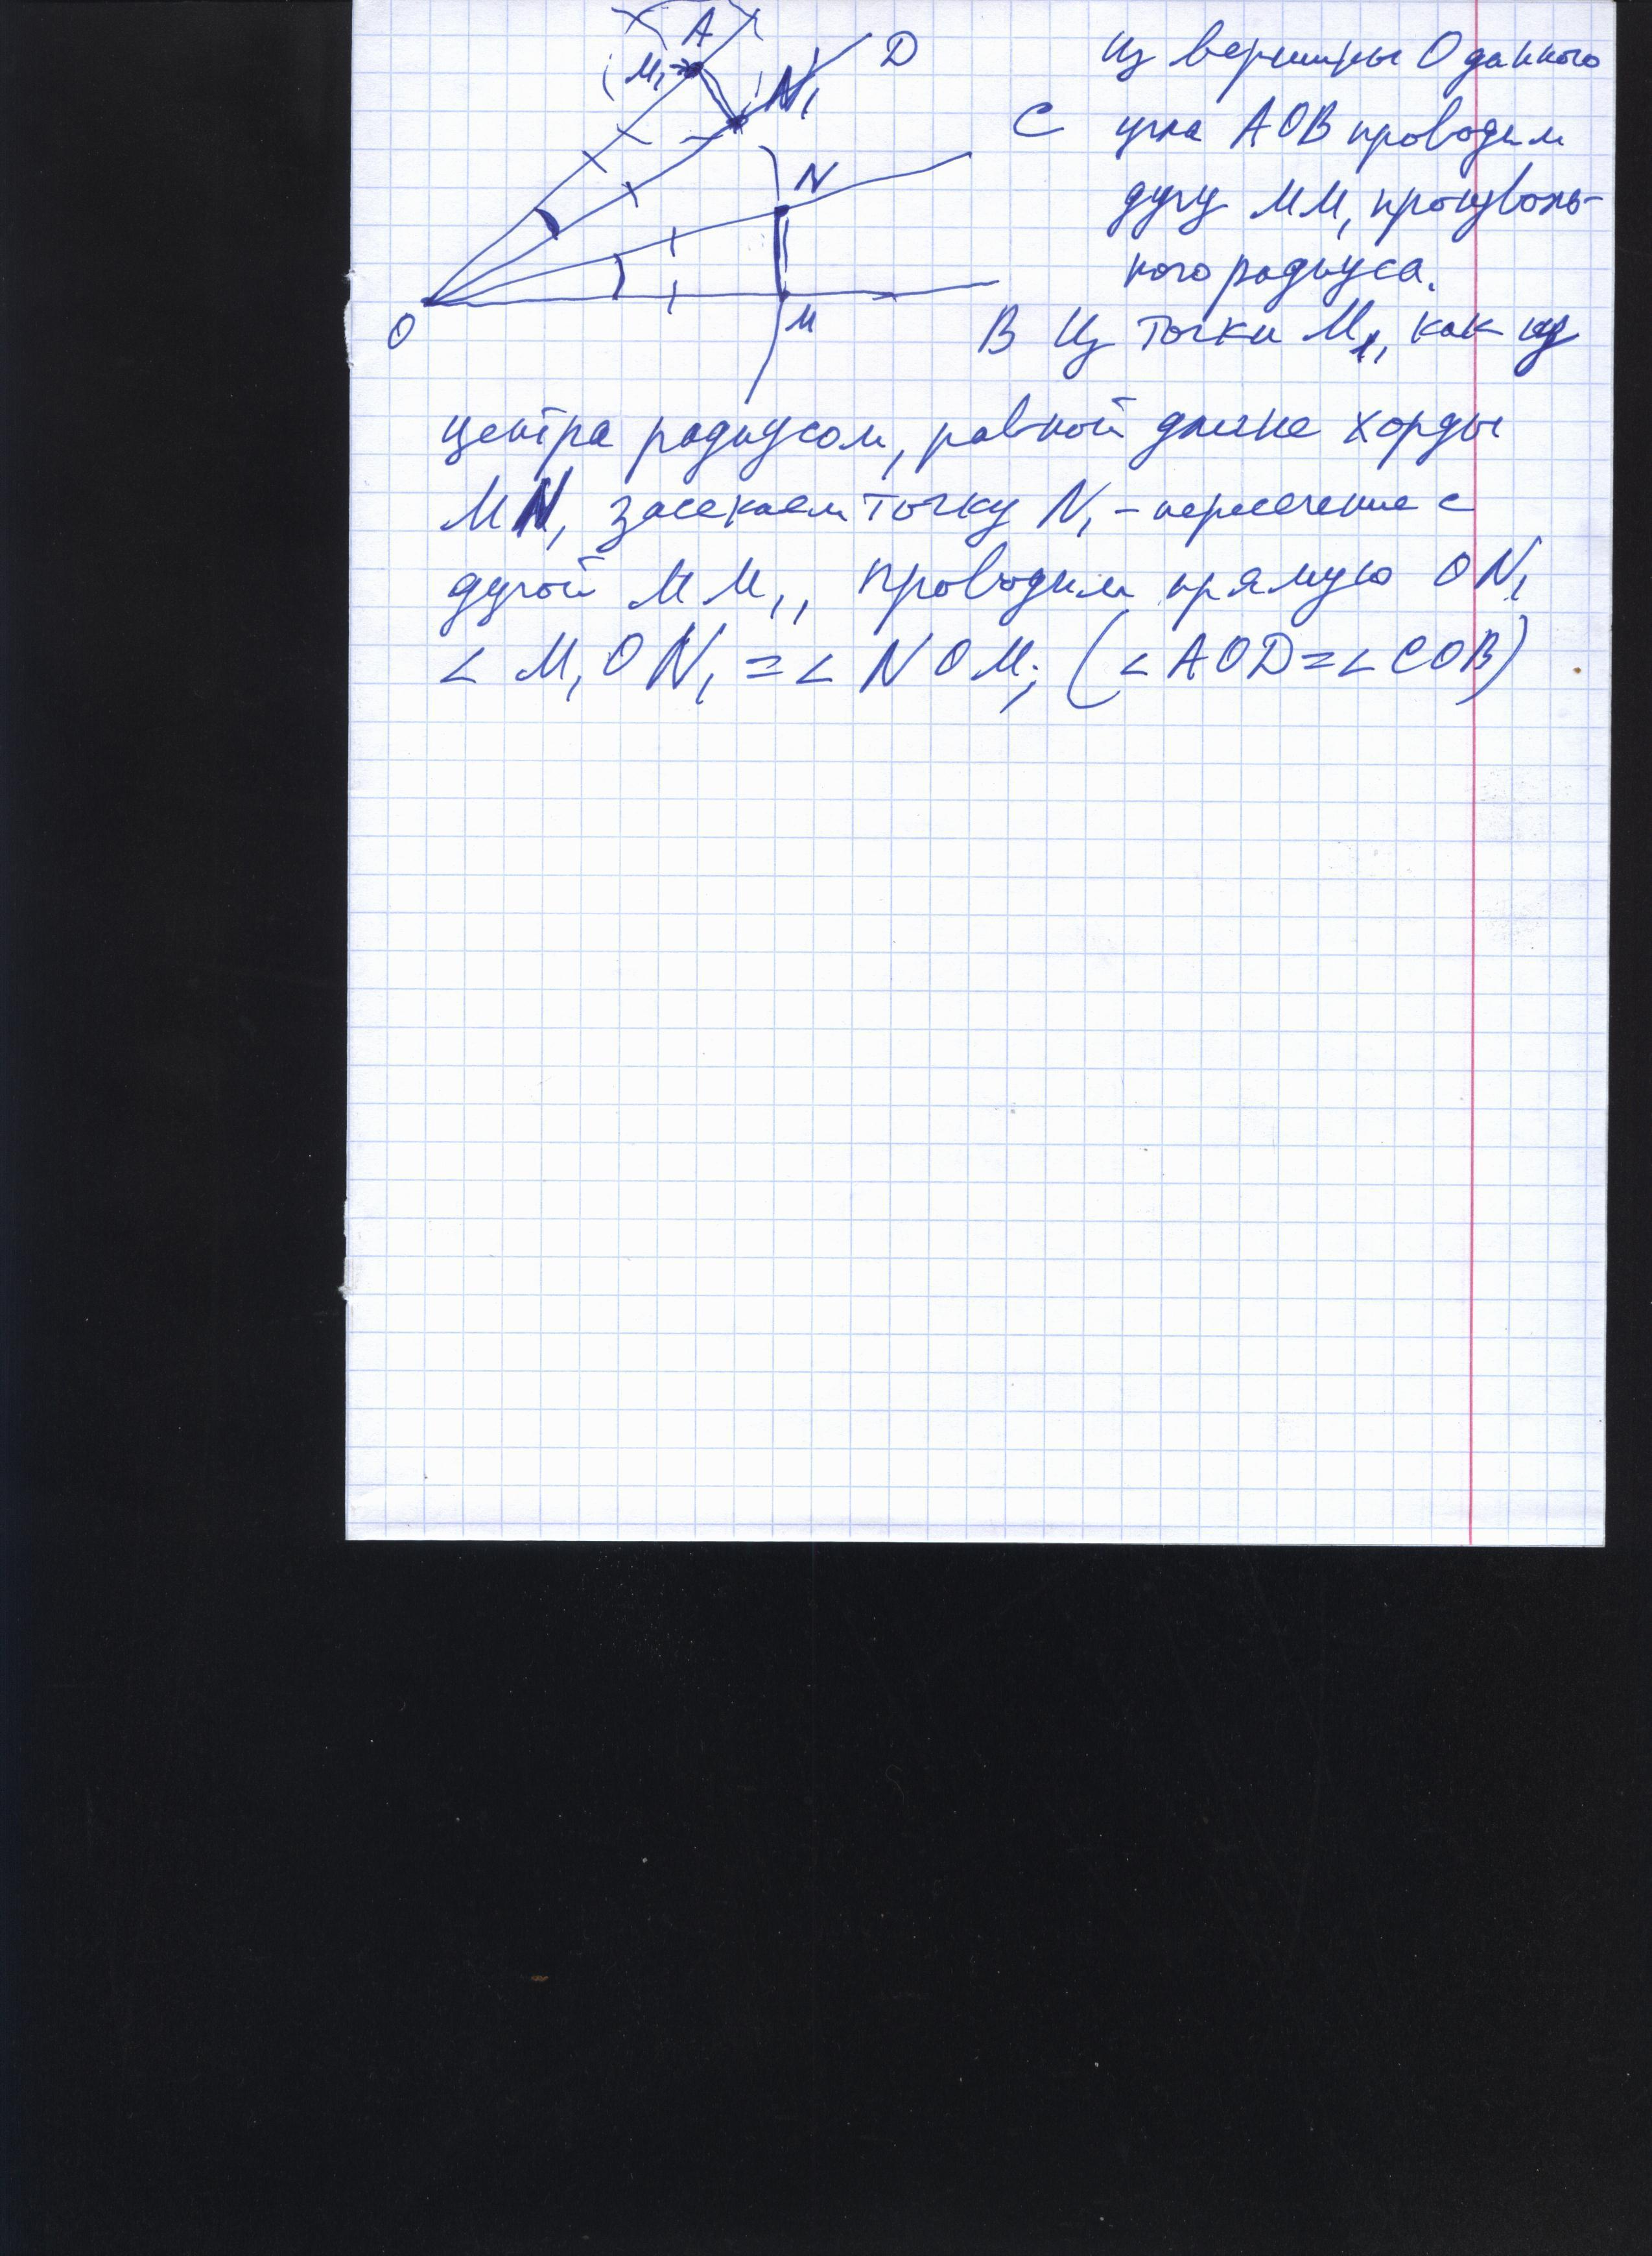 A
D
M₁
N₁
N
C
O
M
B
Из вершины O данного
угла AOB проводим
дугу MM₁ произволь-
ного радиуса.
Из точки M₁, как из
центра радиусом, равной длине хорды
MN, засекаем точку N₁ - пересечение с
дугой MM₁, проводим прямую ON₁
∠ M₁ON₁ = ∠ NOM; (∠AOD=∠COB)